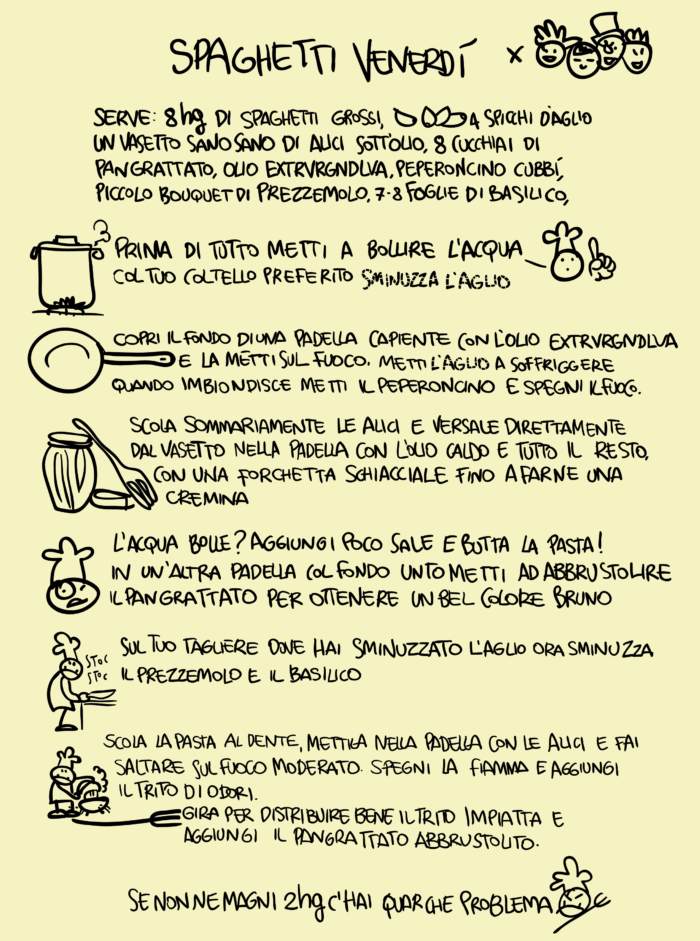 SPAGHETTI VENERDÍ x
SERVE: 8hg DI SPAGHETTI GROSSI, 4 SPICHI D'AGLIO
UN VASETTO SANO SANO DI ALICI SOTT'OLIO, 8 CUCCHIAI DI
PANGRATTATO, OLIO EXTRVRGNDLVA, PEPERONCINO CUBBÍ,
PICCOLO BOUQUET DI PREZZEMOLO, 7-8 FOGLIE DI BASILICO,
PRIMA DI TUTTO METTI A BOLLIRE L'ACQUA
COL TUO COLTELLO PREFERITO SMINUZZA L'AGLIO
COPRI IL FONDO DI UNA PADELLA CAPIENTE CON L'OLIO EXTRVRGNDLVA
E LA METTI SUL FUOCO. METTI L'AGLIO A SOFFRIGGERE
QUANDO IMBIONDISCE METTI IL PEPERONCINO E SPEGNI IL FUOCO.
SCOLA SOMMARIAMENTE LE ALICI E VERSALE DIRETTAMENTE
DAL VASETTO NELLA PADELLA CON L'OLIO CALDO E TUTTO IL RESTO,
CON UNA FORCHETTA SCHIACCIALE FINO A FARNE UNA
CREMINA
L'ACQUA BOLLE? AGGIUNGI POCO SALE E BUTTA LA PASTA!
IN UN'ALTRA PADELLA COL FONDO UNTO METTI AD ABBRUSTOLIRE
IL PANGRATTATO PER OTTENERE UN BEL COLORE BRUNO
STOC
STOC
SUL TUO TAGLIERE DOVE HAI SMINUZZATO L'AGLIO ORA SMINUZZA
IL PREZZEMOLO E IL BASILICO
SCOLA LA PASTA AL DENTE, METTILA NELLA PADELLA CON LE ALICI E FAI
SALTARE SUL FUOCO MODERATO. SPEGNI LA FIAMMA E AGGIUNGI
IL TRITO DI ODORI.
GIRA PER DISTRIBUIRE BENE IL TRITO IMPIATTA E
AGGIUNGI IL PANGRATTATO ABBRUSTOLITO.
SE NON NE MAGNI 2hg C'HAI QUARCHE PROBLEMA